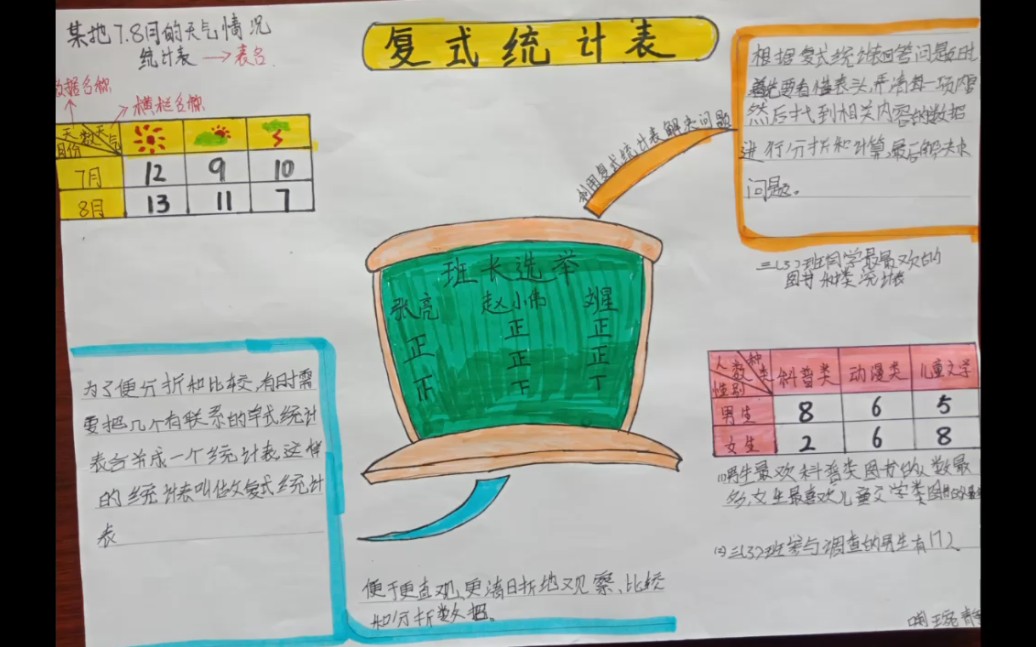 复式统计表
某地7.8月的天气情况
统计表 → 表名
数据名称
横栏名称
天数 天气
月份
7月 12 9 10
8月 13 11 7
利用复式统计表解决问题
根据复式统计表回答问题时
首先要看懂表头,弄清每一项内容
然后找到相关内容的数据
进行分折和计算,最后解决
问题。
班长选举
张亮 赵小伟 刘星
正 正 正
正 正
三(3)班同学最喜欢的
图书种类统计表
人数 种类
性别
科普类 动漫类 儿童文学
男生 8 6 5
女生 2 6 8
(1)男生最欢科普类图书的人数最
多,女生最喜欢儿童文学类图书的
(2)三(3)班参与调查的男生有17人
为了便分折和比较,有时需
要把几个有联系的单式统计
表合并成一个统计表,这样
的统计表叫做复式统计
表
便于更直观,更清日折地观察、比较
和分折数据。